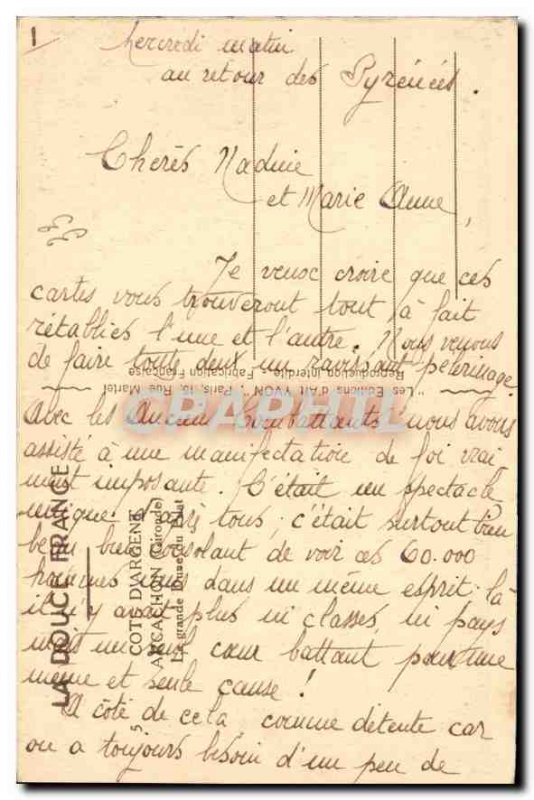 1
Mercredi matin
au retour des Pyrénées.
Chères Nadine
et Marie Anne,
Je veux croire que ces
cartes vous trouveront tout à fait
rétablies l'une et l'autre. Nous venons
de faire tous deux un ravissant pélerinage
Avec les Anciens Combattants nous avons
assisté à une manifestation de foi vrai
ment imposante. C'était un spectacle
unique tous; c'était surtout bien
beau bien consolant de voir ces 60.000
hommes unis dans un même esprit; là
il n'y avait plus ni classes, ni pays
mais un seul cœur battant pour une
même et seule cause!
A côté de cela comme détente car
on a toujours besoin d'un peu de
LA DOUCE FRANCE
COTE D'ARGENT
5. ARCACHON (Gironde)
La grande Dune du Pilat
"Les Editions d'Art YVON", Paris, 15, Rue Martel
Reproduction interdite Fabrication Française
CPAPHIL